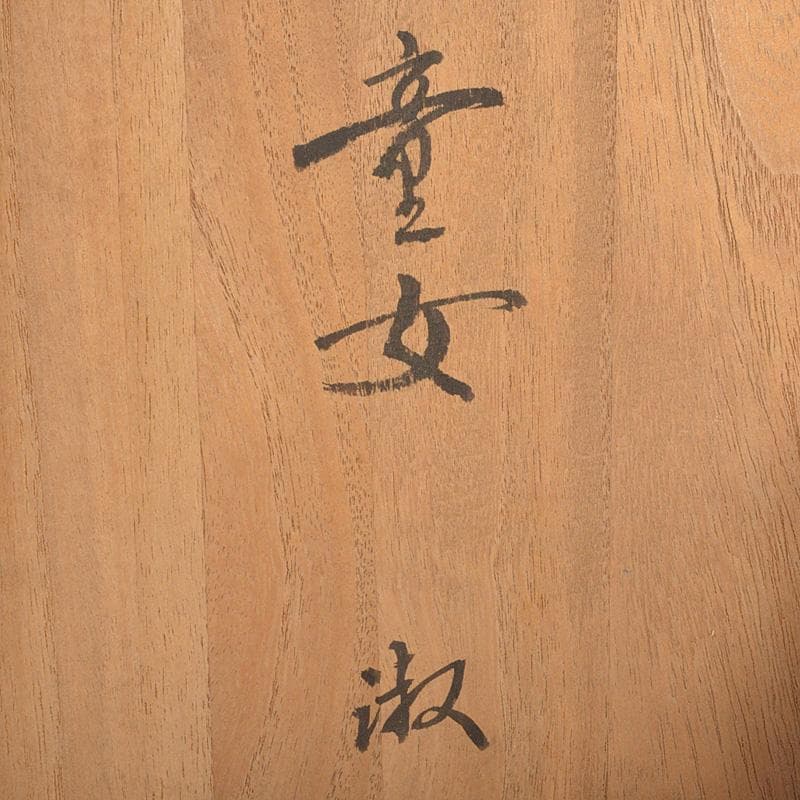 童女
淑